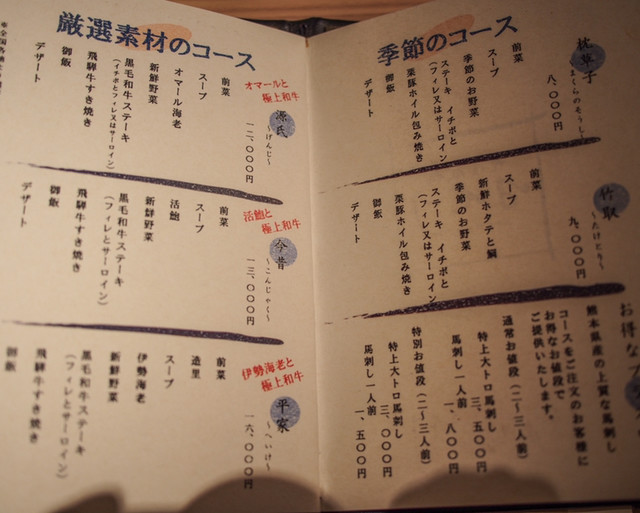 季節のコース
枕草子
〜まくらのそうし〜
八、〇〇〇円
前菜
スープ
季節のお野菜
ステーキ イチボと
（フィレ又はサーロイン）
栗豚ホイル包み焼き
御飯
デザート
竹取
〜たけとり〜
九、〇〇〇円
前菜
スープ
新鮮ホタテと鯛
季節のお野菜
ステーキ イチボと
（フィレ又はサーロイン）
栗豚ホイル包み焼き
御飯
デザート
熊本県産の上質な馬刺し
コースをご注文のお客様に
お得なお値段で
ご提供いたします。
通常お値段（二〜三人前）
特上大トロ馬刺し
三、五〇〇円
馬刺し一人前
一、八〇〇円
特別お値段（二〜三人前）
特上大トロ馬刺し
三、〇〇〇円
馬刺し一人前
一、五〇〇円
厳選素材のコース
オマールと
極上和牛
源氏
〜げんじ〜
一二、〇〇〇円
前菜
スープ
オマール海老
新鮮野菜
黒毛和牛ステーキ
（イチボとフィレ又はサーロイン）
飛騨牛すき焼き
御飯
デザート
活鮑と
極上和牛
今昔
〜こんじゃく〜
一三、〇〇〇円
前菜
スープ
活鮑
新鮮野菜
黒毛和牛ステーキ
（フィレとサーロイン）
飛騨牛すき焼き
御飯
デザート
伊勢海老と
極上和牛
平家
〜へいけ〜
一六、〇〇〇円
前菜
造里
スープ
伊勢海老
新鮮野菜
黒毛和牛ステーキ
（フィレとサーロイン）
飛騨牛すき焼き
御飯